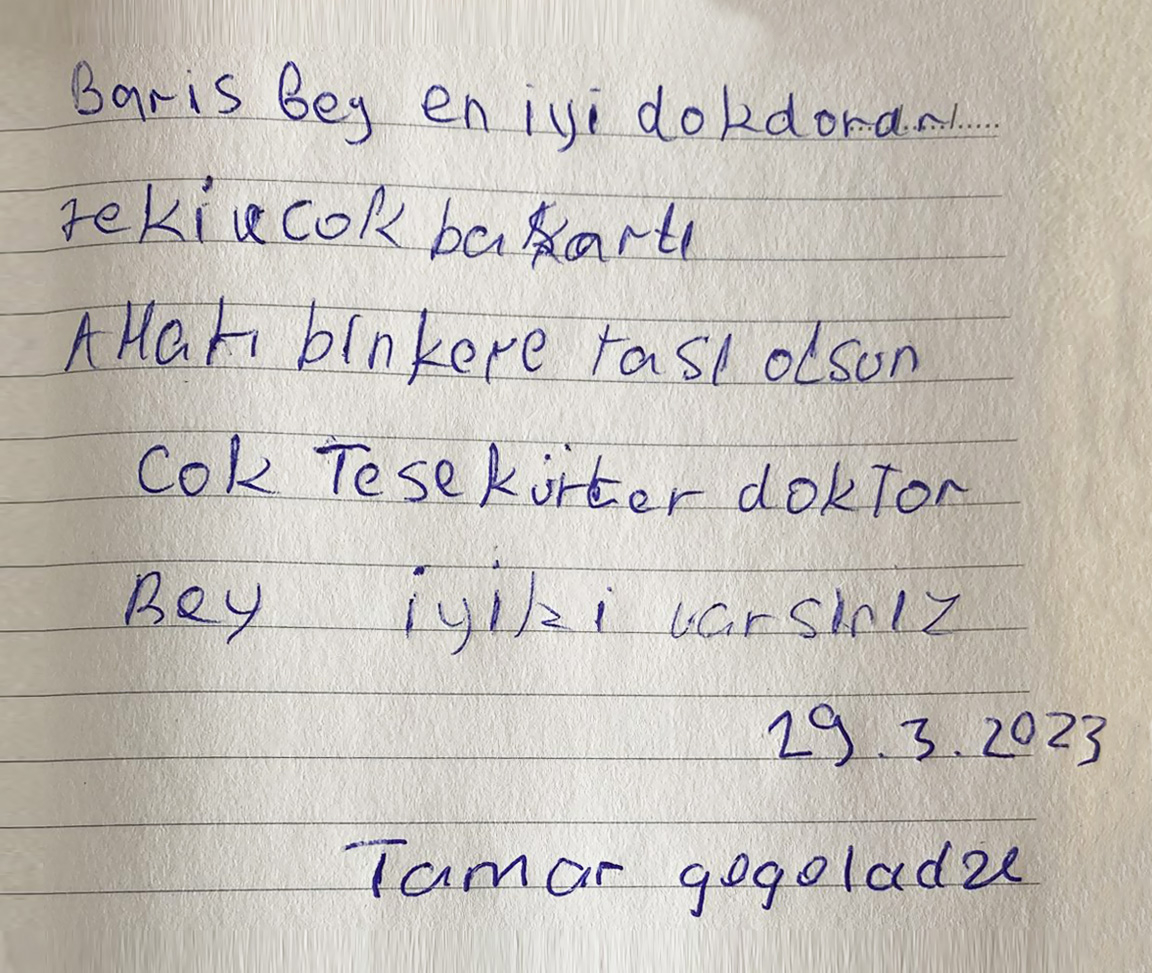 Baris Bey en iyi dokdoran
zekiucok baksartı
Allah binkere rası olsun
Cok Tesekürler dokTor
Bey iyiki varsınız
29.3.2023
Tamar gogoladze